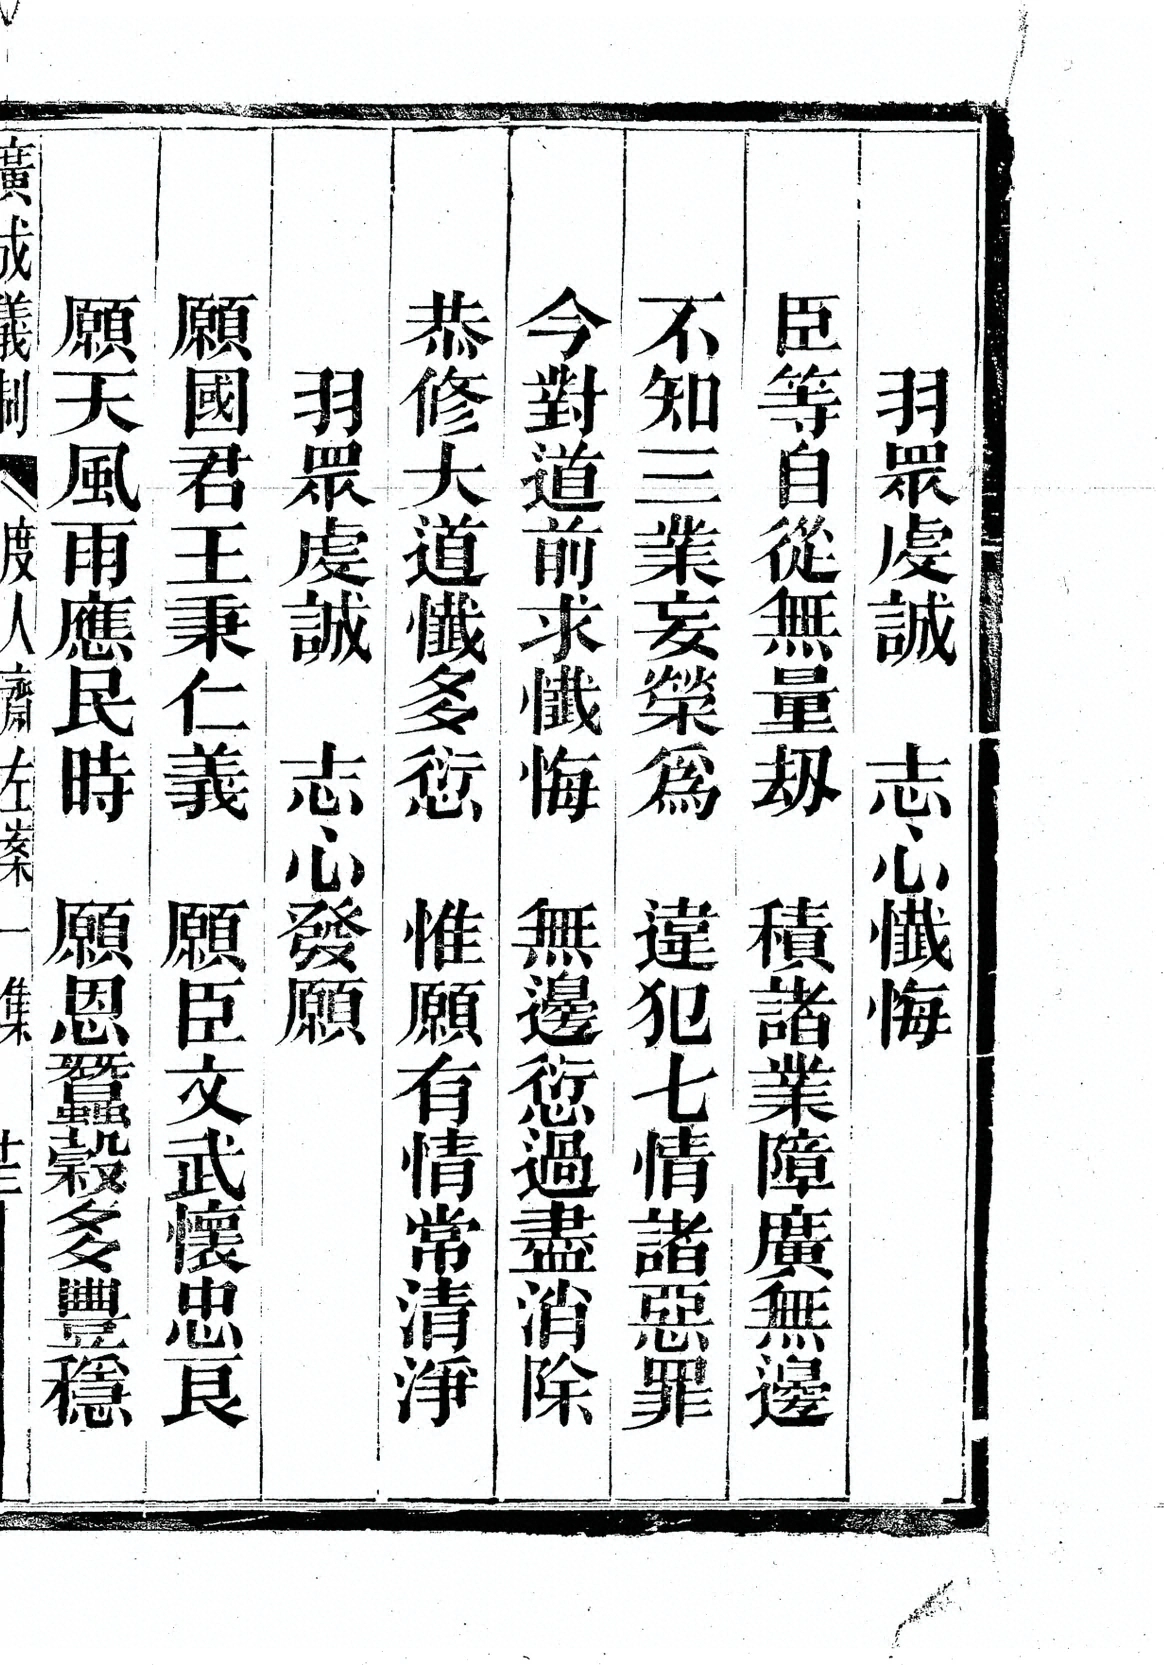 羽眾虔誠　志心懺悔
臣等自從無量刼　積諸業障廣無邊
不知三業妄榮爲　違犯七情諸惡罪
今對道前求懺悔　無邊愆過盡消除
恭修大道懺多愆　惟願有情常清淨
羽眾虔誠　志心發願
願國君王秉仁義　願臣文武懷忠良
願天風雨應民時　願恩蠶穀多豐穩
廣成儀制　度人齋左案一集　廿三